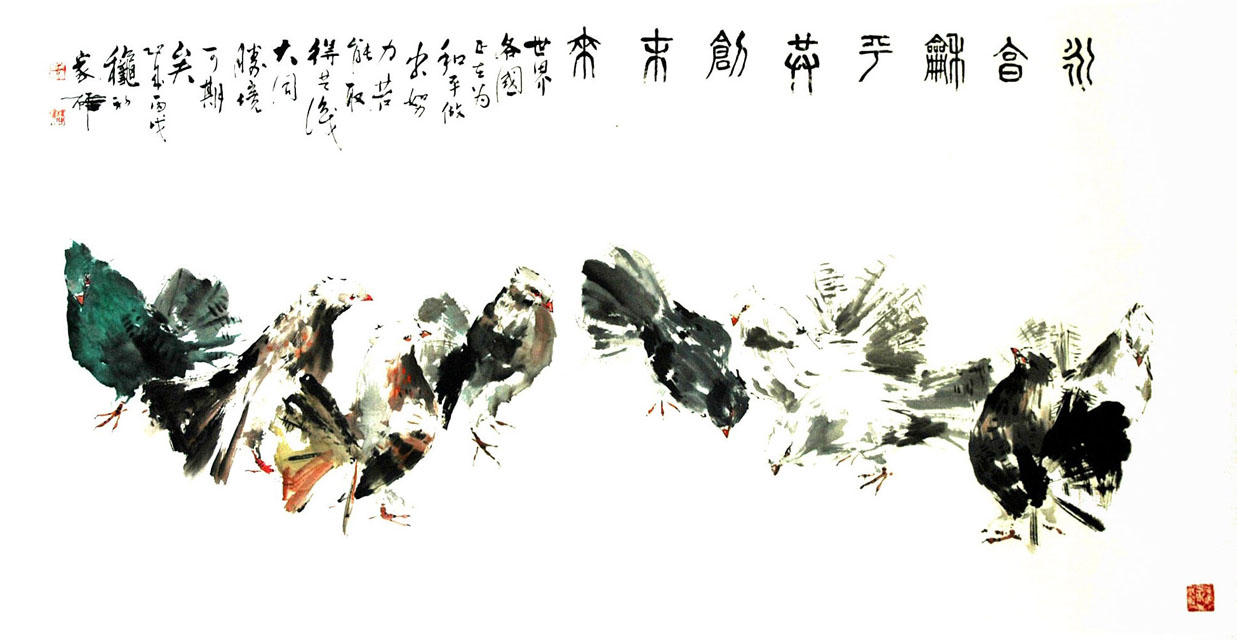 永享龢平共創未來
世界
各國
正在为
和平做
出努
力若
能取
得共識
大同
勝境
可期
矣
丙戌
家